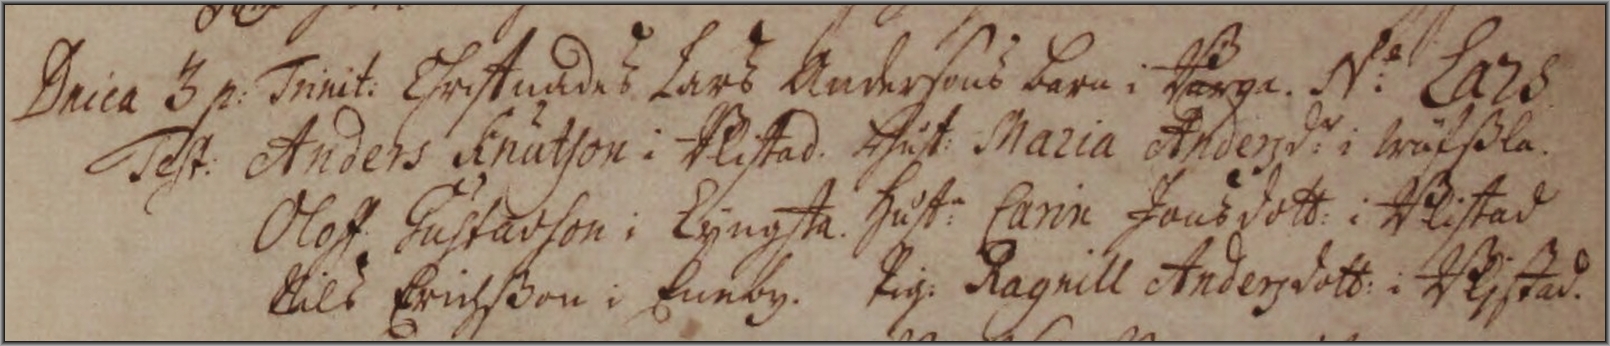 Dnica 3 p: Trinit: Christnades Lars Andersons barn i Warga. N:e Lars
Test: Anders Knutson i Wlistad. Hust: Maria Andersd:r i
Oloff Gustavson i Lyngsta. Hust: Carin Jonsdott: i Wlistad
Nils Erichsson i Enneby. Pig: Ragnill Andersdott: i Wlistad.